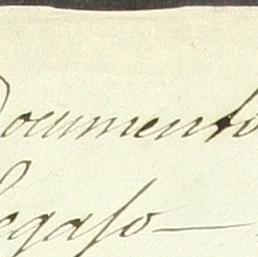 Documento
Legaso —